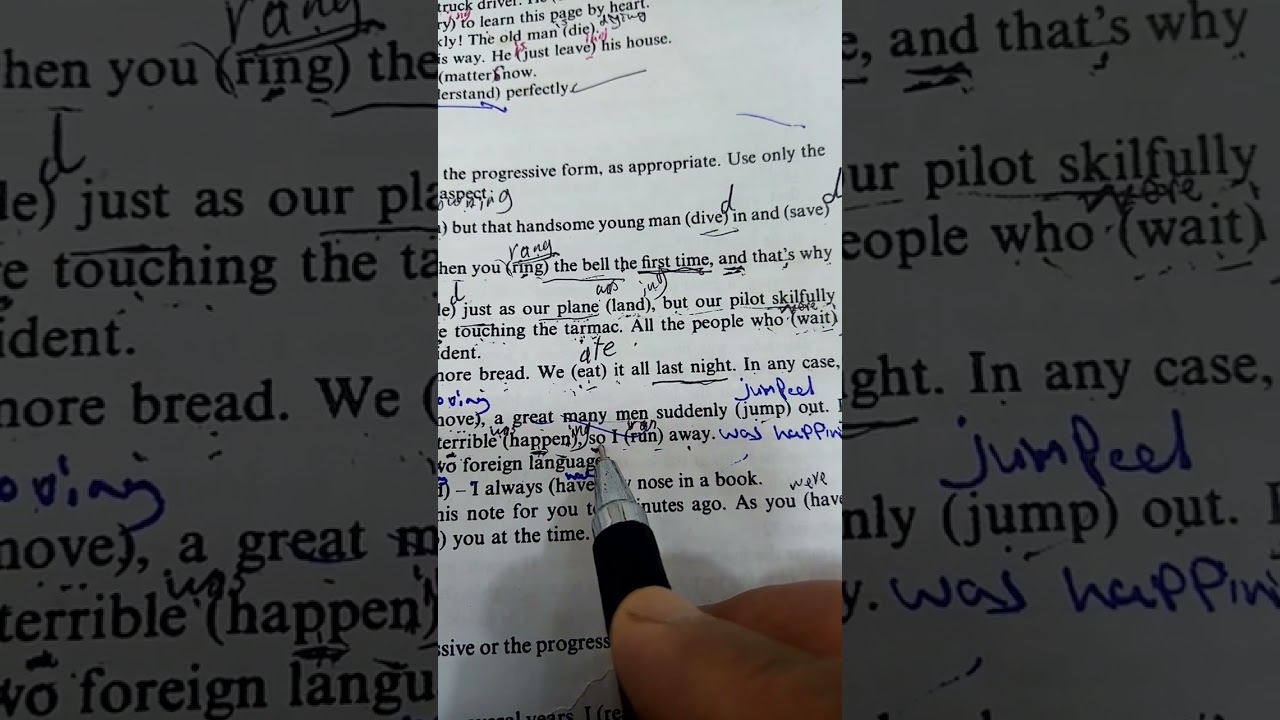 truck driver. He
ry) to learn this page by heart.
kly! The old man (die) dying
is way. He is (just leave) his house.
(matter) now.
derstand) perfectly.
the progressive form, as appropriate. Use only the
aspect:
but that handsome young man (dive) d in and (save) d
rang
hen you (ring) the bell the first time, and that's why
d
le) just as our plane (land), but our pilot skilfully
were
e touching the tarmac. All the people who (wait)
ident.
ate
more bread. We (eat) it all last night. In any case,
oving jumped
move), a great many men suddenly (jump) out. I
was ing ran
terrible (happen), so I (run) away. was happin
wo foreign language
– I always (have nose in a book.
were
his note for you minutes ago. As you (have
) you at the time.
ssive or the progress
several years. I (re